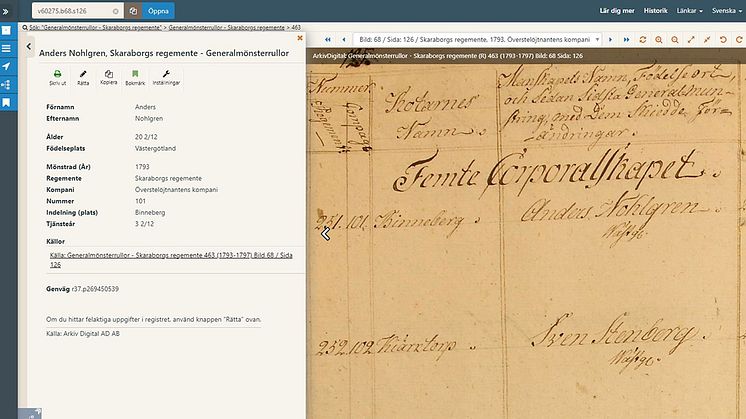 v60275.b68.s126
Öppna
Lär dig mer
Historik
Länkar
Svenska
Sök: "Generalmönsterrullor - Skaraborgs regemente" > Generalmönsterrullor - Skaraborgs regemente > 463
Anders Nohlgren, Skaraborgs regemente - Generalmönsterrullor
Skriv ut
Rätta
Kopiera
Bokmärk
Inställningar
Förnamn Anders
Efternamn Nohlgren
Ålder 20 2/12
Födelseplats Västergötland
Mönstrad (År) 1793
Regemente Skaraborgs regemente
Kompani Överstelöjtnantens kompani
Nummer 101
Indelning (plats) Binneberg
Tjänsteår 3 2/12
Källor
Källa: Generalmönsterrullor - Skaraborgs regemente 463 (1793-1797) Bild 68 / Sida
126
Genväg r37.p269450539
Om du hittar felaktiga uppgifter i registret, använd knappen "Rätta" ovan.
Källa: Arkiv Digital AD AB
Bild: 68 / Sida: 126 / Skaraborgs regemente, 1793, Överstelöjtnantens kompani
ArkivDigital: Generalmönsterrullor - Skaraborgs regemente (R) 463 (1793-1797) Bild: 68 Sida: 126
Nummer
Regements
Compagn
Rotarnes
Namn
Manskapets Namn, Födelse ort,
och Sedan Sidsta General mun-
string, med Dem Skedde För-
ändringar.
Femte Corporalskapet.
251. 101. Binneberg.
Anders Nohlgren
Wästg.
252. 102
Sven Stenberg
Wästg.